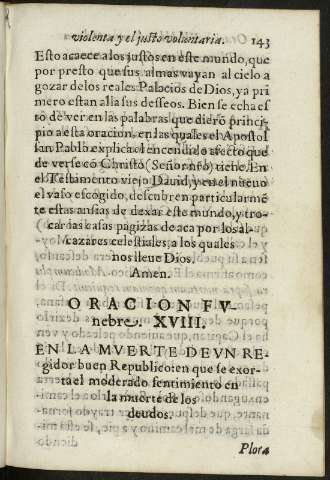 violenta y el justo voluntaria. 143
Esto acaece a los justos en este mundo, que
por presto que sus almas vayan al cielo a
gozar delos reales Palacios de Dios, ya pri
mero estan alla sus desseos. Bien se echa es
to de ver en las palabras que dierō princi-
pio a esta oracion, en las quales el Apostol
san Pablo explica el encendido afecto que
de verse cō Christo (Señor nr̄o) tiene, En
el Testamento viejo Dauid, y en el nueuo
el vaso escogido, descubren particularmē
te estas ansias de dexar este mundo, y tro-
car las casas pagizas de aca por los al-
cazares celestiales, a los quales
nos lleue Dios.
Amen.
ORACION FV-
nebre. XVIII.
EN LA MVERTE DE VN RE-
gidor buen Republico: en que se exor-
ta el moderado sentimiento en
la muerte de los
deudos.
Plora